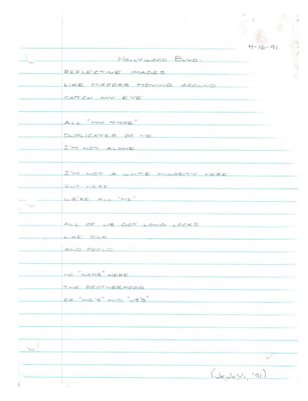 4-16-91
HOLLYWOOD BLVD.
REFLECTIVE IMAGES
LIKE MIRRORS MOVING AROUND
CATCH MY EYE
ALL "MY TYPE"
DUPLICATES OF ME
I'M NOT ALONE
I'M NOT A WHITE MINORITY HERE
OUT HERE
WE'RE ALL "ME"
ALL OF US GOT LONG LOCKS
LIKE SILK
AND PROUD
NO "NADS" HERE
THE BROTHERHOOD
OF "ME'S" AND "US'S"
'91)